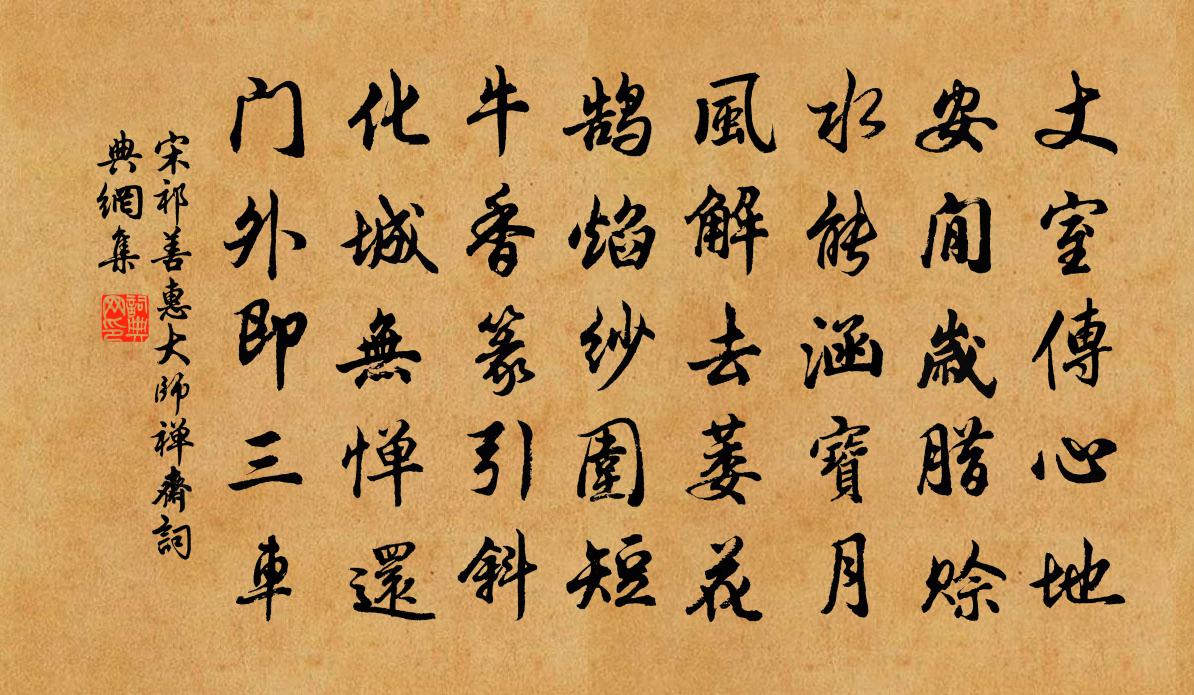 丈室傳心地
安閒歲腊赊
水能涵寶月
風解去萎花
鹄焰纱圍短
牛香篆引斜
化城無惮還
门外即三車
宋祁善惠大師禅齋詞
典網集
詞典网印